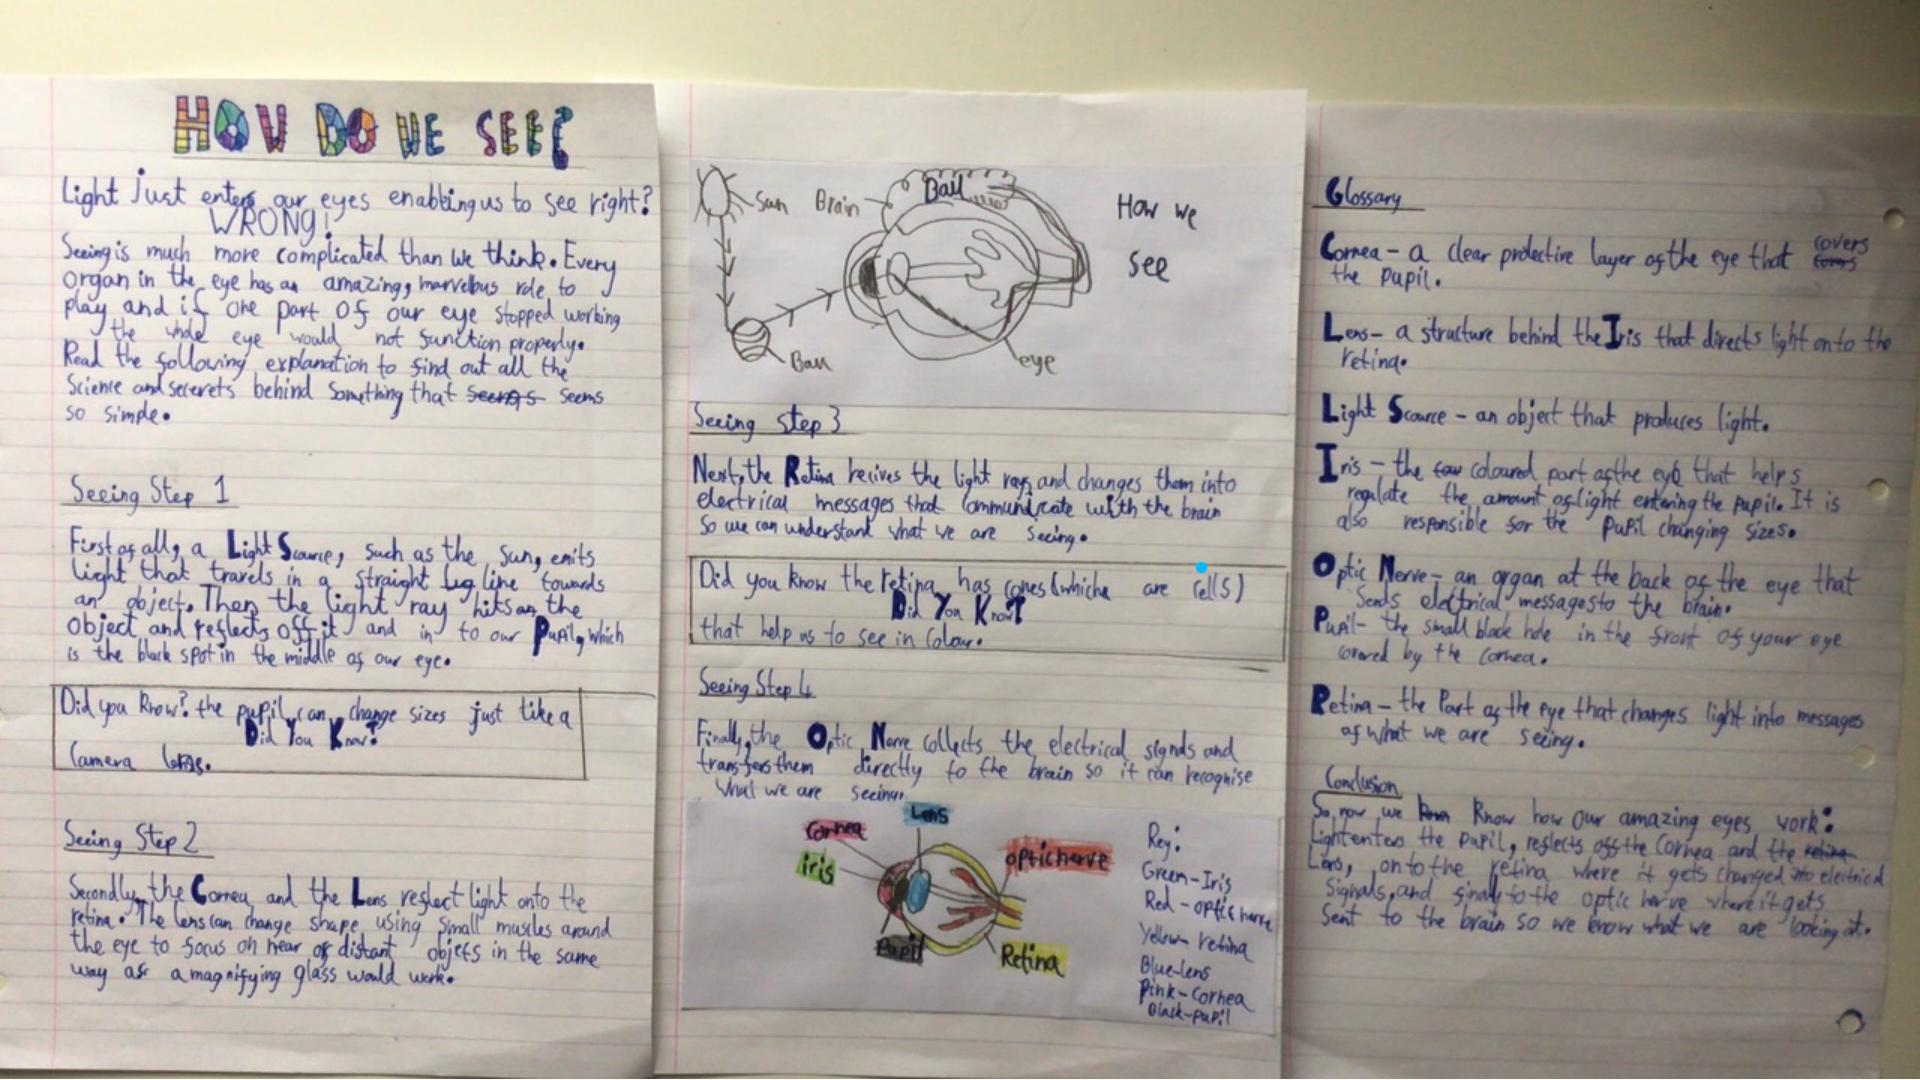 HOW DO WE SEE?
Light Just enters our eyes enabling us to see right?
WRONG!
Seeing is much more complicated than we think. Every
organ in the eye has an amazing, marvelous role to
play and if one part of our eye stopped working
the whole eye would not function properly.
Read the following explanation to find out all the
Science and secerets behind something that seems
so simple.
Seeing Step 1
First of all, a Light Source, such as the Sun, emits
light that travels in a straight line towards
an object. Then the light ray hits the
object and reflects off it and in to our Pupil, which
is the black spot in the middle of our eye.
Did you Know? the pupil can change sizes just like a
Did You Know?
Camera lens.
Seeing Step 2
Secondly, the Cornea and the Lens reflect light onto the
retina. The lens can change shape using small muscles around
the eye to focus on near or distant objects in the same
way as a magnifying glass would work.
Sun Brain Ball
How we
see
Ball
eye
Seeing Step 3
Next, the Retina recives the light rays and changes them into
electrical messages that communicate with the brain
so we can understand what we are seeing.
Did you know the retina has cones (which are cells)
Did You Know?
that help us to see in Colour.
Seeing Step 4
Finally, the Optic Nerve collects the electrical signals and
transfers them directly to the brain so it can recognise
what we are seeing.
Lens
Cornea
iris
optic nerve
Pupil
Retina
Key:
Green-Iris
Red-optic nerve
Yellow-retina
Blue-lens
Pink-Cornea
Black-pupil
Glossary
Cornea - a clear protective layer of the eye that covers
the pupil.
Lens - a structure behind the Iris that directs light onto the
retina.
Light Source - an object that produces light.
Iris - the coloured part of the eye that helps
regulate the amount of light entering the pupil. It is
also responsible for the pupil changing sizes.
Optic Nerve - an organ at the back of the eye that
sends electrical messages to the brain.
Pupil - the small black hole in the front of your eye
covered by the cornea.
Retina - the Part of the eye that changes light into messages
of what we are seeing.
Conclusion
So now we Know how our amazing eyes work:
Light enters the pupil, reflects off the Cornea and the
Lens, on to the retina where it gets changed into electrical
signals, and finally to the optic nerve where it gets
sent to the brain so we know what we are looking at.